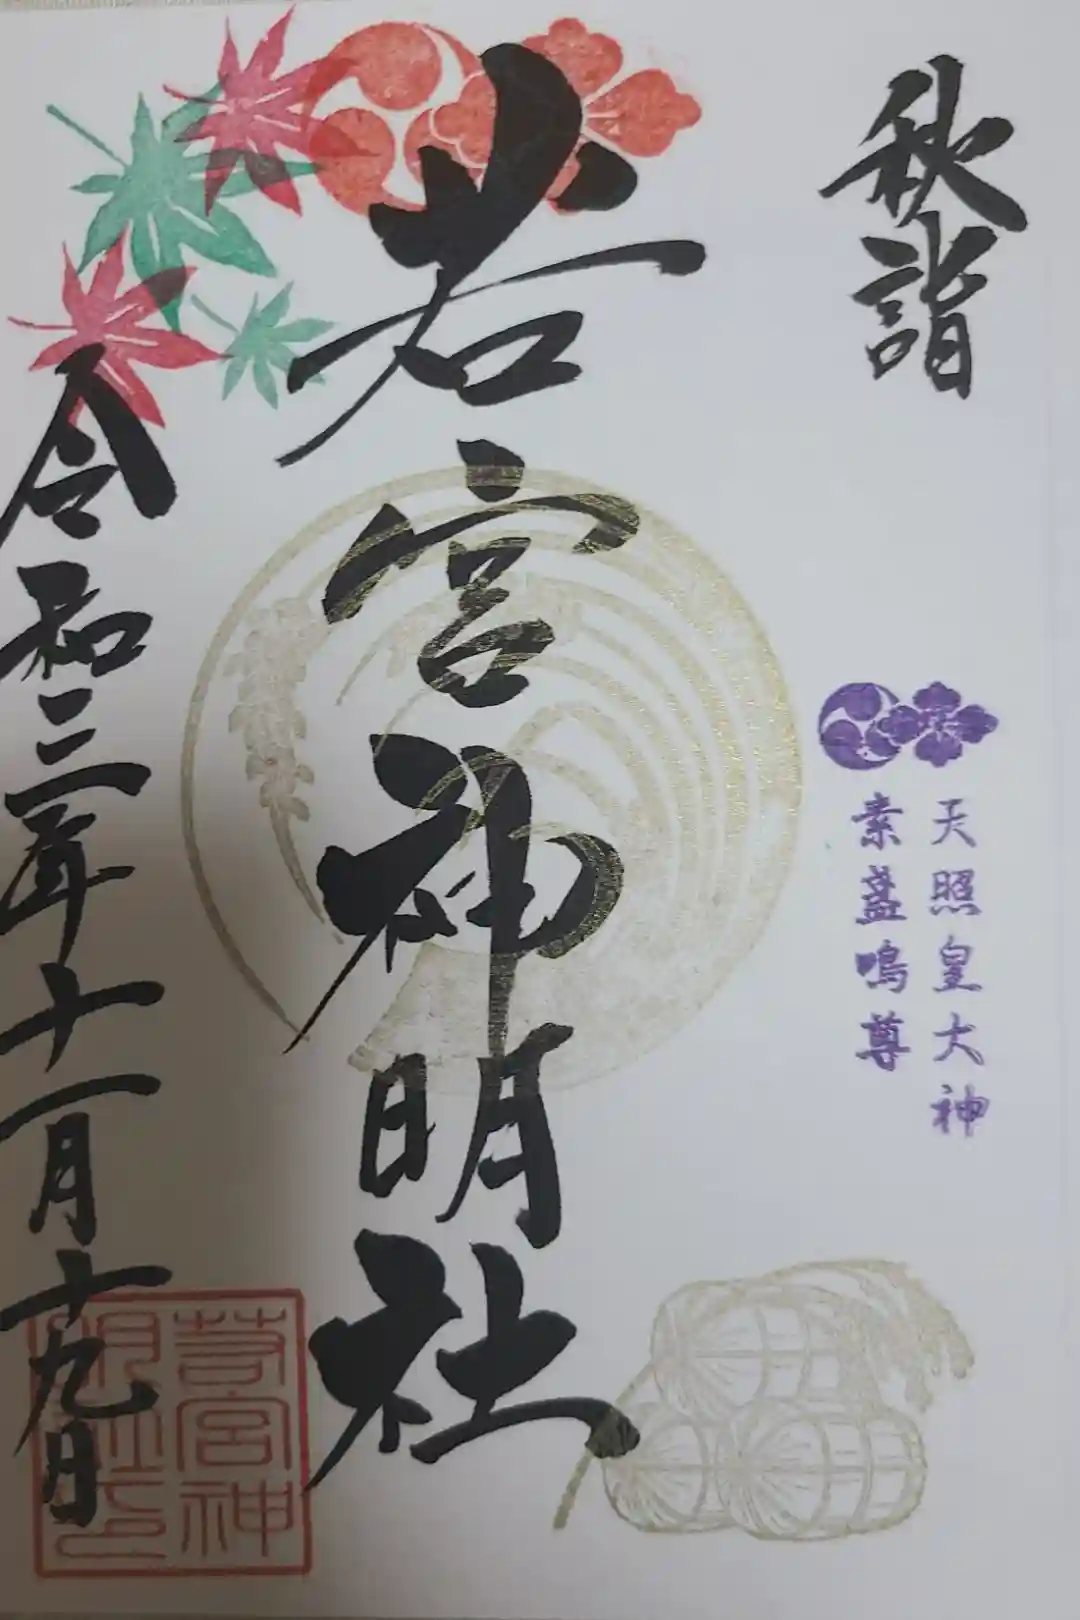 秋詣
天照皇大神
素盞鳴尊
若宮神明社
令和三年十一月十九日
若宮神
明社印